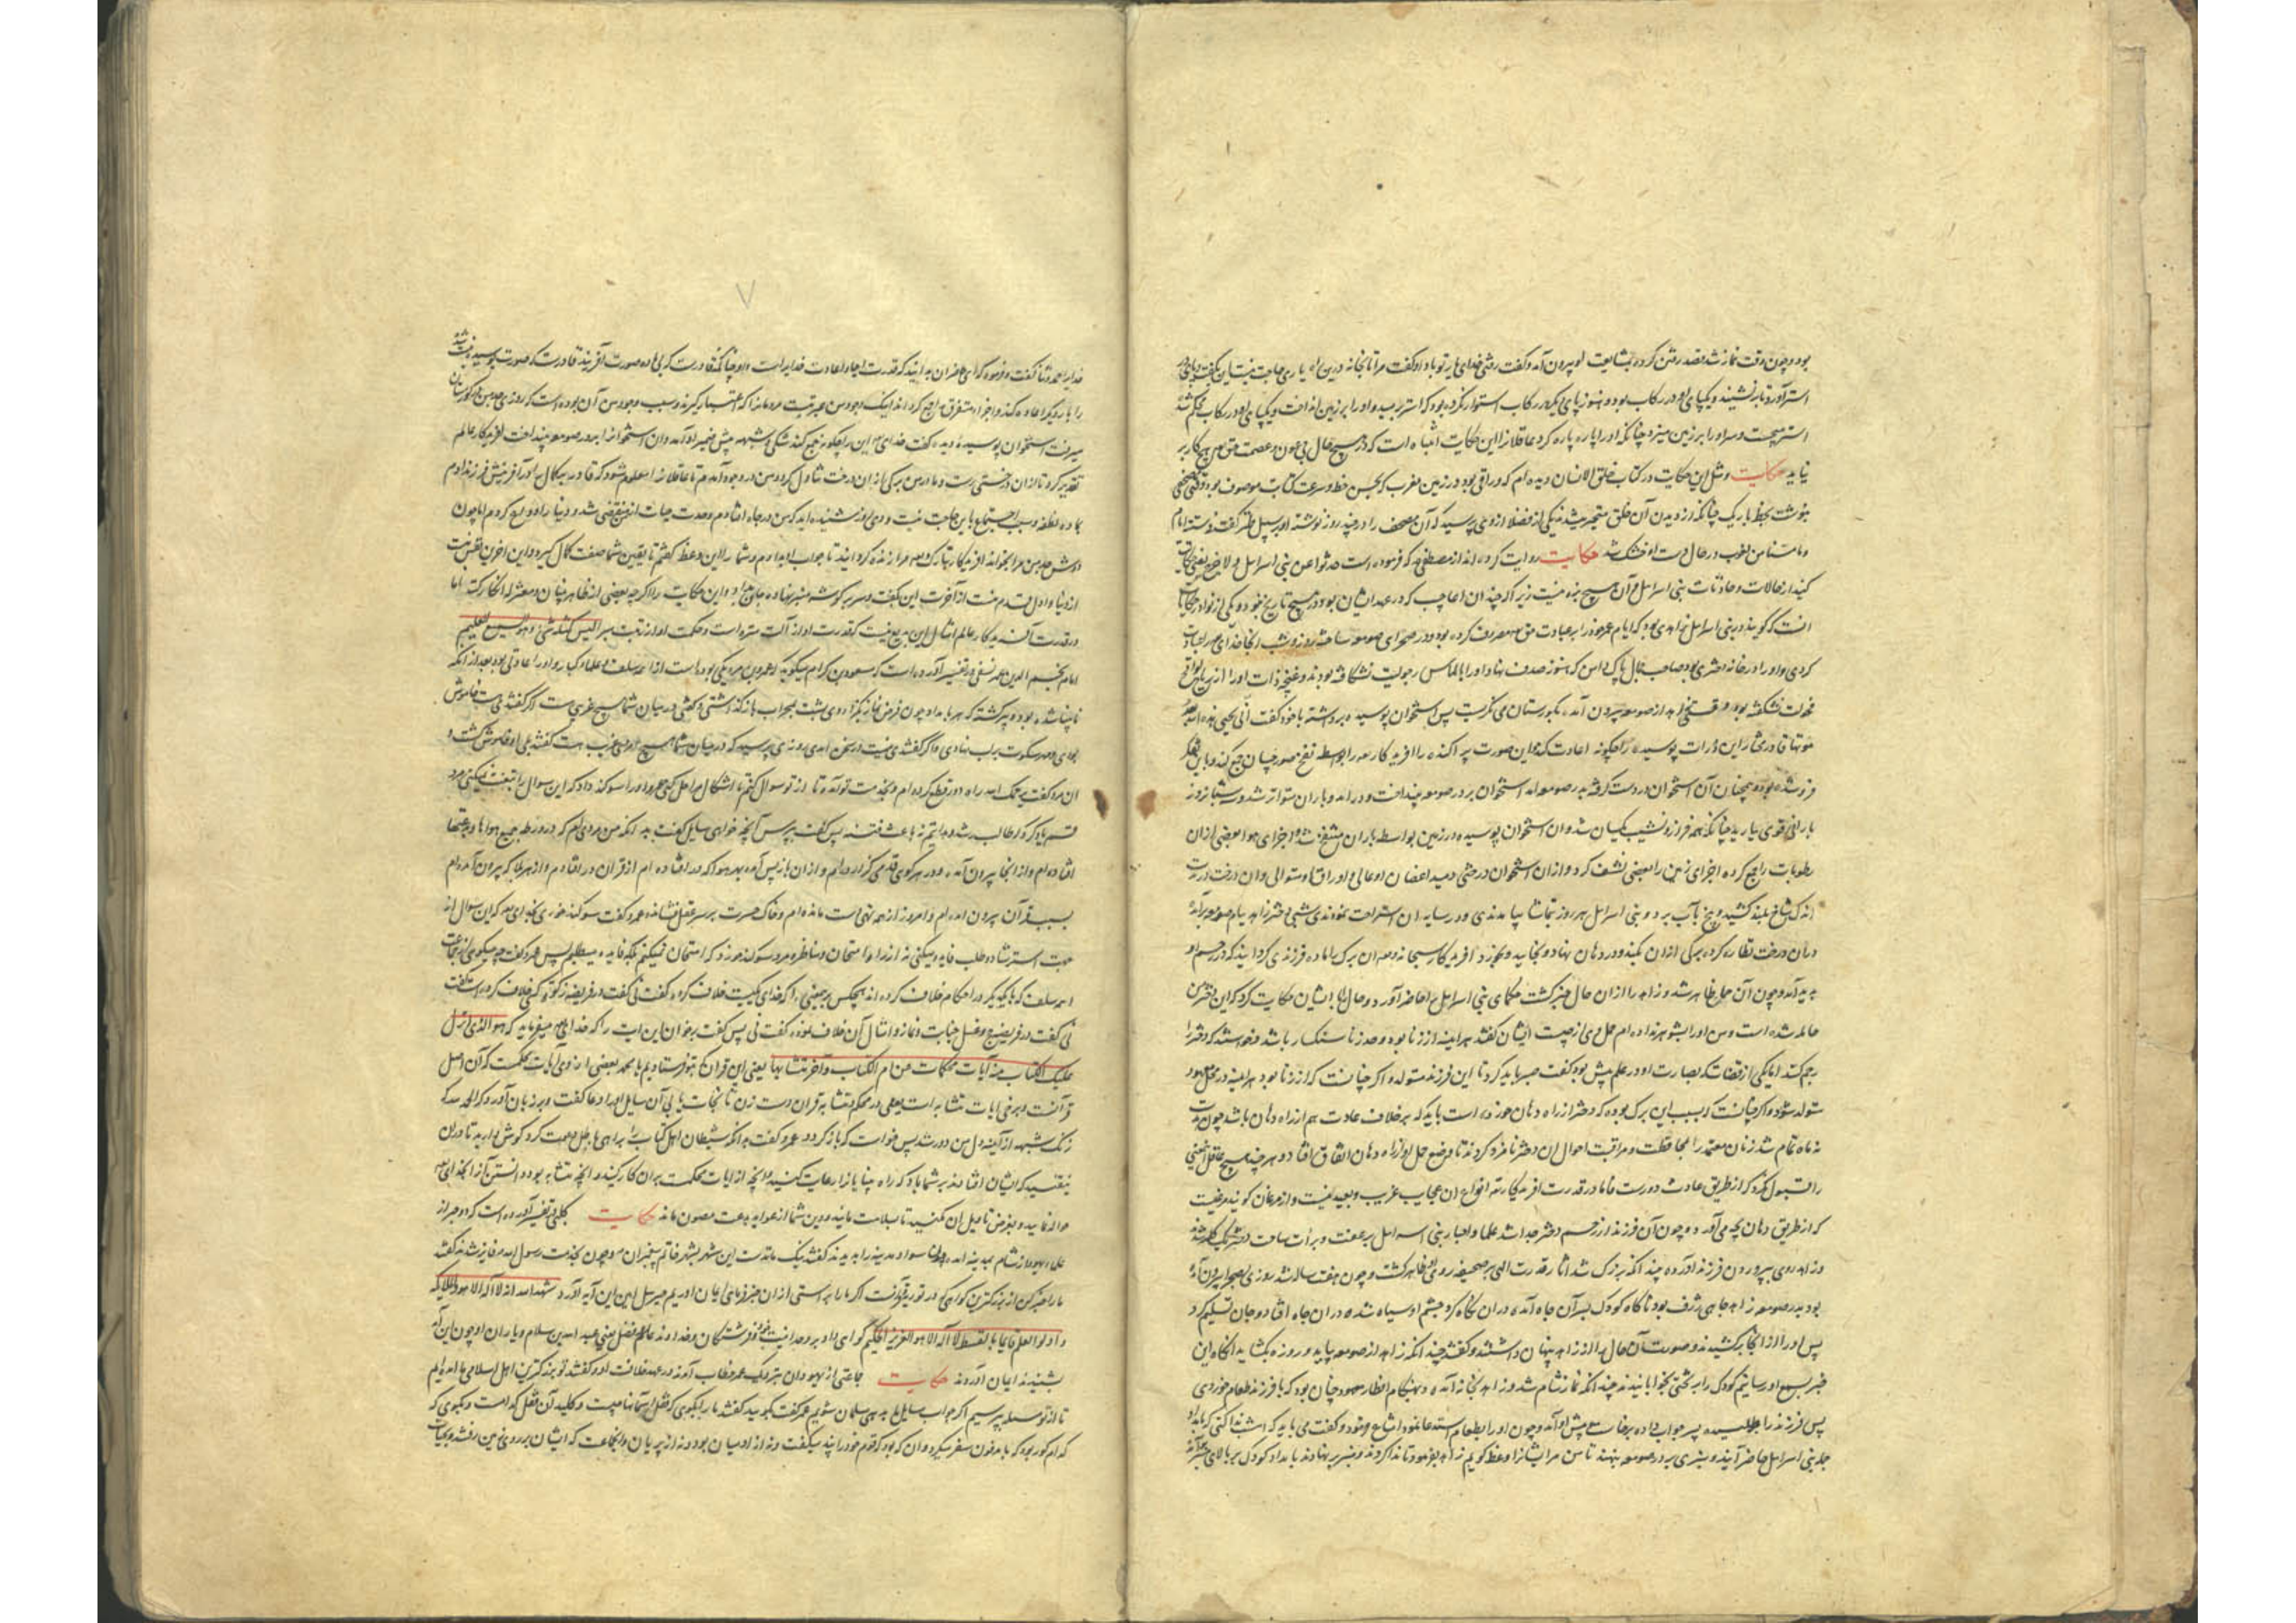 بود و چون وقت نماز شد قصد رفتن کرد و بمشایعت او بیرون آمد و گفت خدای یار تو باد او گفت مرا تا بخانه درین راه یاری حاجت نیست این بگفت و
استر آورد تا برنشیند و یکپای او در رکاب بود و هنوز پای دیگر در رکاب استوار نکرده بود که استر برمید و او را بر زمین انداخت و یکپای او در رکاب محکم شد
استر میجست و سر او را بر زمین میزد چنانکه او را پاره پاره کرد عاقلانرا این حکایت انتباه است که در هیچ حال بی عون و عصمت حق هیچ کار بر
نیاید حکایت و مثل این حکایت در کتاب خلق الانسان دیده ام که وراقی بود در زمین مغرب که بحسن خط و سرعت کتابت موصوف بود وقتی مصحفی
بنوشت بخط باریک چنانکه از دیدن آن خلق متحیر میشدند یکی از فضلا از وی پرسید که آن مصحف را در چند روز نوشته او بر سبیل گفت
و ما مسنا من لغوب در حال دست او خشک شد حکایت روایت کرده اند از مصطفی که فرموده است حدثوا عن بنی اسرائیل و لا حرج یعنی حکایت
کنید از حالات و حادثات بنی اسرائیل که در آن هیچ بزه نیست زیرا که چندان اعاجیب که در عهد ایشان بود در هیچ تاریخ نبود و یکی از نوادر حکایات
آنست که گویند در بنی اسرائیل زاهدی بود که ایام عمر خود را بر عبادت حق مصروف کرده بود و در صحرای صومعه ساخته روز و شب آنجا خدایرا عبادت
کردی و او را در خانه دختری بود صاحب جمال پاک دامن که هنوز صدف نهاد او را بالماس رجولیت نشکافته بودند و غنچه ذات او را از
نشکفته بود وقتی زاهد از صومعه بیرون آمد بگورستان می نگریست پس استخوان پوسیده برداشت با خود گفت انی یحیی هذه الله بعد
موتها قادر مختار این ذرات پوسیده را چگونه اعادت کند و این صورت پراکنده را آفریدگار بواسطه نفخ صور چسان جمع کند و باین فکر
فرو شده بود و همچنان آن استخوان در دست گرفته بدر صومعه آمد استخوان بر در صومعه بینداخت و در آمد و باران متواتر شد و سه شبانروز
بارانی قوی ببارید چنانکه همه فراز و نشیب یکسان شد و آن استخوان پوسیده در زمین بواسطه باران شد و اجزای هوا بعضی از آن
رطوبات را جمع کرده اجزای زمین را بعضی نشف کرد و از آن استخوان درختی دمید اعضان او عالی و اوراق او متوالی و آن درخت در مدت
اندک شاخ بلند کشید و بیخ بآب برد و بنی اسرائیل هر روز بتماشا بیامدندی و در سایه آن استراحت نمودندی شبی دختر زاهد ببام صومعه برآمد
در آن درخت نظاره کرده برگی از آن بکند و در دهان نهاد و بخایید و بخورد آفریدگار سبحانه و تعالی آن برگ را ماده فرزندی گردانید که در رحم او
پدید آمد و چون آن حمل ظاهر شد و زاهد را از آن حال خبر گشت حکمای بنی اسرائیل را حاضر آورد و حال با ایشان حکایت کرد که این دختر من
حامله شده است و من او را بشوهر نداده ام حمل وی از چیست ایشان گفتند هر آینه از زنا بود و حد زنا سنگسار باشد و خواستند که دختر را
رجم کنند اما یکی از قضات که بصارت او در علم بیش بود گفت صبر باید کرد تا این فرزند متولد شود اگر چنانست که از زنا بود هر آینه در محل معهود
متولد شود و اگر چنانست که بسبب این برگ بوده که دختر از راه دهان خورده است باید که بر خلاف عادت هم از راه دهان باشد چون مدت
نه ماه تمام شد زنان معتمد را بمحافظت و مراقبت احوال آن دختر نامزد کردند تا وضع حمل او از راه دهان اتفاق افتاد و هر چند هیچ عاقل این معنی
را قبول نکرد که از طریق عادت دورست فاما در قدرت آفریدگار انواع آن عجایب غریب و بعید نیست و از مرغان گویند مرغیست
که از طریق دهان بچه می آورد و چون آن فرزند از رحم دختر جدا شد علما و احبار بنی اسرائیل بر عفت و براءت ساحت دختر یکدل شدند
و زاهد روی بپروردن فرزند آورد و چندانکه بزرگ شد آثار قدرت الهی بر صحیفه روی او ظاهر گشت و چون هفت ساله شد روزی بصحرا بیرون آمد
بود بدر صومعه زاهد چاهی ژرف بود ناگاه کودک بسر آن چاه آمده در آن نگاه کرد چشم او سیاه شده در آن چاه افتاد و جان تسلیم کرد
پس او را از آنجا برکشیدند و صورت آن حال را از زاهد پنهان داشتند و گفتند چندانکه زاهد از صومعه بیاید و روزه بگشاید آنگاه این
خبر بسمع او رسانیم کودک را بر تختی بخوابانیدند چندانکه نماز شام شد و زاهد بخانه آمد و بهنگام افطار معهود چنان بود که با فرزند طعام خوردی
پس فرزند را طلبید پسر جواب داده برخاست و پیش او آمد و چون او را بطعام استدعا نمود امتناع نمود و گفت می باید که امشب ندا کنی که بامداد
جمله بنی اسرائیل حاضر آیند و منبری بر در صومعه بنهند تا من مر ایشانرا وعظ گویم زاهد بفرمود تا ندا کردند و منبر بنهادند بامداد کودک بر بالای منبر آمد
خدایرا حمد و ثنا گفت و فرمود که ای حاضران بدانید که قدرت ایجاد و اعادت خدایراست و او چنانکه قادرست که بی ماده صورت آفریند قادرست که صورت پوسیده نیست شده
را بار دیگر اعاده کند و اجزاء متفرق را جمع گرداند اینک وجود من عبرتیست مردمانرا که اعتبار گیرند و سبب وجود من آن بوده است که روزی جد من بگورستان
میرفت استخوان پوسیده دید گفت خدای این را چگونه جمع کند شکی و شبهه پیش ضمیر او آمد و آن استخوانرا بر در صومعه بینداخت آفریدگار عالم
تقدیر کرد تا از آن درختی رست و مادر من برگی از آن درخت تناول کرد و من در وجود آمدم تا عاقلانرا معلوم شود که قادر بر کمال را در آفرینش فرزند آدم
بماده نطفه و سبب اجتماع باین حاجت نیست و دی روز شنیده اید که من در چاه افتادم و مدت حیات از من منقضی شد و دنیا را وداع کردم اما چون
دوش جد من مرا بخواند آفریدگار تبارک و تعالی مرا زنده گردانید تا جواب او دادم و شما را این وعظ گفتم تا یقین شما صفت کمال گیرد و این آخرین نفس منست
از دنیا و اول قدم منست از آخرت این بگفت و سر بر گوشه منبر نهاده جان بداد و این حکایت را اگر چه بعضی از ظاهر بینان و معتزله انکار کنند اما
در قدرت آفریدگار عالم امثال این بدیع نیست که قدرت او از آلت منزه است و حکمت او از تهمت مبرا لیس کمثله شیء و هو السمیع العلیم
امام نجم الدین عمر نسفی در تفسیر آورده است که مسعود بن کرام میگوید که عمرو بن مره یکی بوده است از ائمه سلف و علماء کبار و او را عادتی بود بعد از آنکه
نابینا شده بود و پیر گشته که هر بامداد چون فرض نماز بگزاردی پشت بمحراب باز گذاشتی و گفتی در میان شما هیچ غریبی هست اگر گفتندی هست خاموش
بودی و مهر سکوت بر لب نهادی و اگر گفتندی نیست در سخن آمدی روزی پرسید که در میان شما هیچ مردی غریب هست گفتند بلی او خاموش گشت و
آن مرد گفت یرحمک الله راه دور قطع کرده ام و بخدمت تو آمده تا از تو سوال کنم تا اشکال مرا حل کنی عمرو او را سوگند داد که این سوال را تعنت نمیکنی مرد
قسم یاد کرد که طالب رشد و هدایتم نه باعث فتنه پس گفت بپرس آنچه خواهی سایل گفت بدانکه من مردی ام که در ورطه جمیع هواها و بدعتها
افتاده ام و از آنجا بیرون آمده و در هر کوی قدمی گزارده ام و از آن باز پس آمده بهر هوا که در افتاده ام از قرآن در افتادم و از هر بلا که بیرون آمده ام
بسبب قرآن بیرون آمده ام و امروز از همه تهی دست مانده ام و خاک حسرت بر سر عقل نشانده عمرو گفت سوگند خوری بخدای که این سوال از
جهت استرشاد و طلب فایده میکنی نه از راه امتحان و مناظره مرد سوگند خورد که امتحان نمیکنم بلکه فایده میطلبم پس عمرو گفت چه میگوی از جماعت
ائمه سلف که با یکدیگر در احکام خلاف کرده اند هیچکس بر معنی آنکه خدای یکیست خلاف کرده گفت نی گفت در فریضه زکوة کسی خلاف کرده است گفت
نی گفت در فریضه حج و غسل جنابت و نماز و امثال آن خلاف بوده گفت نی پس گفت بر خوان این آیت را که خدای میفرماید که هو الذی انزل
علیک الکتاب منه آیات محکمات هن ام الکتاب و اخر متشابهات یعنی این قرآن که بتو فرستادیم یا محمد بعضی از وی آیات محکمست که آن اصل
قرآنست و برخی آیات متشابه است یعنی در محکم و متشابه قرآن دست زن تا نجات یابی آن سایل او را دعا گفت و بر زبان آورد که الحمد لله که
زنگ شبهه از آیینه دل من دور شد پس خواست که باز گردد عمرو گفت بدانکه شیطان اهل کتاب را براهی باطل دعوت کرد گوش دارید تا در آن
نیفتید که ایشان افتادند بر شما باد که راه چنانرا رعایت کنید و آنچه از آیات محکمست بر آن کار کنید و آنچه متشابه بود دانستن آنرا بخدای
حواله نمایید و تعرض تاویل آن مکنید تا بسلامت مانید و دین شما از غوایله بدعت مصون ماند حکایت کلبی در تفسیر آورده است که دو حبر از
علماء یهود از شام بمدینه آمدند چون سواد مدینه را بدیدند گفتند نیک مانندست این شهر بشهر خاتم پیغمبران و چون بخدمت رسول الله فایز شدند گفتند
ما را خبر کن از بزرگترین گواهی که در توریة و قرآنست اگر ما را براستی از آن خبر فرمای ایمان آوریم جبرئیل امین این آیه آورد شهد الله انه لا اله الا هو و الملائکة
و اولوا العلم قائما بالقسط لا اله الا هو العزیز الحکیم گواهی داد بر وحدانیت خود و فرشتگان و خداوند علم و فضل یعنی عبد الله بن سلام و یاران او چون این آیه
بشنیدند ایمان آوردند حکایت جماعتی از یهودان بنزدیک عمر خطاب آمدند در عهد خلافت او و گفتند تو بزرگترین اهل اسلامی ما آمده ایم
تا از تو مسئله پرسیم اگر جواب سایل ما بدهی مسلمان شویم عمر گفت بگویید گفتند ما را بگوی که قفل آسمانها چیست و کلید آن قفل کدامست و بگوی که
کدام گور بود که با مدفون سفر میکرد و آن که بود که قوم خود را پند میگفت و نه از آدمیان بود و نه از پریان و آنجماعت که ایشان بر روی زمین رفتند و